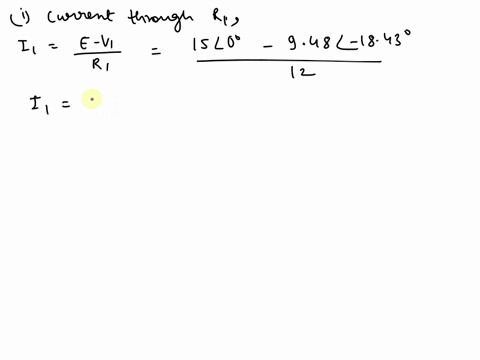 (i) current through R1,
I1 = E-V1 / R1 = 15∠0° - 9.48∠-18.43° / 12
I1 =